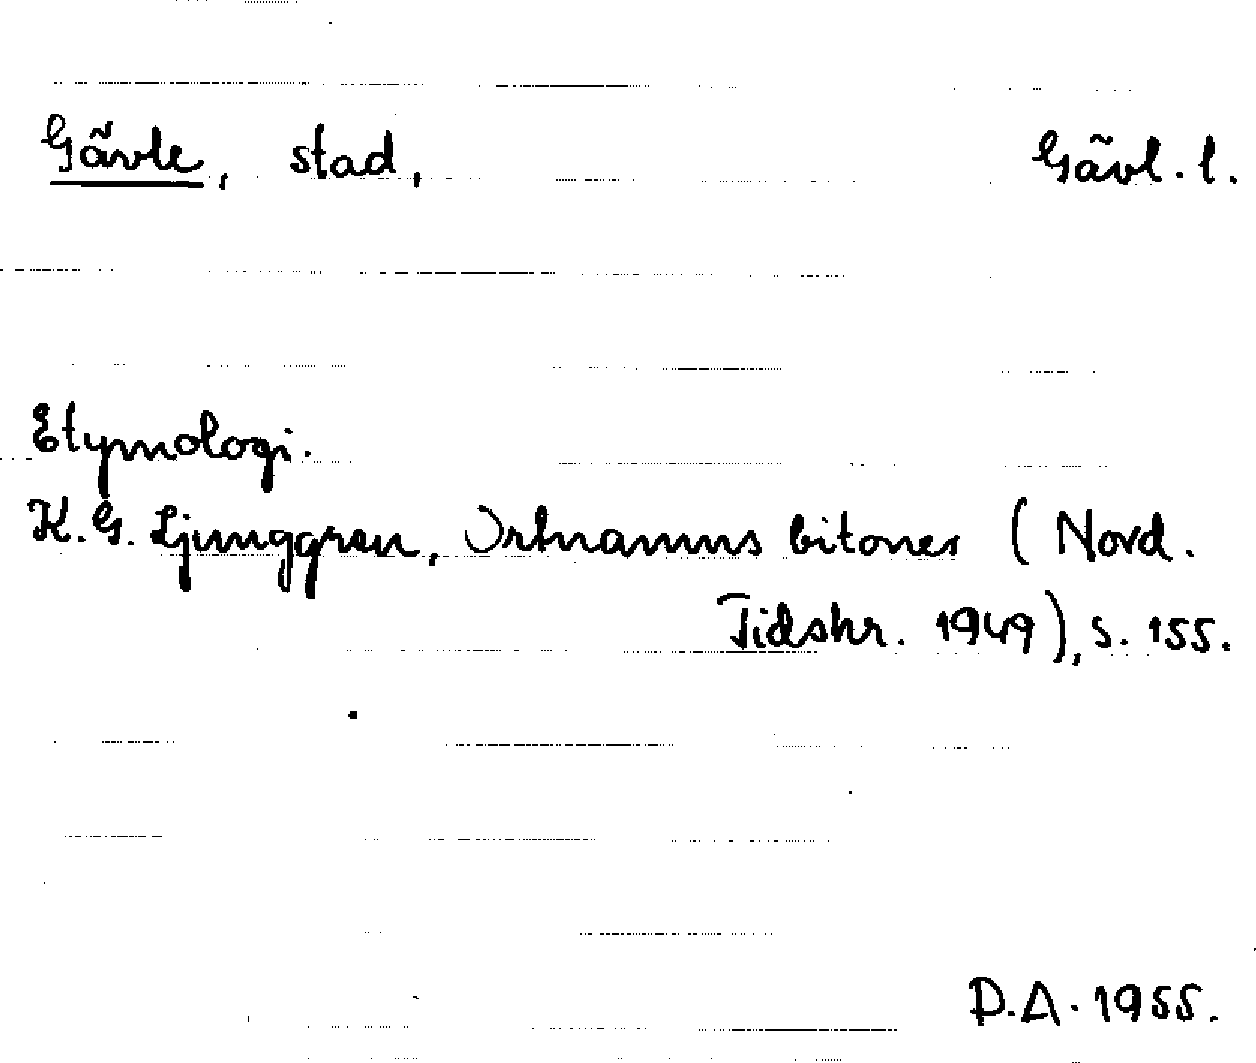 Gävle, stad, Gävl. l.
Etymologi.
K. G. Ljunggren, Ortnamns bitoner (Nord.
Tidskr. 1949), s. 155.
D.A. 1955.